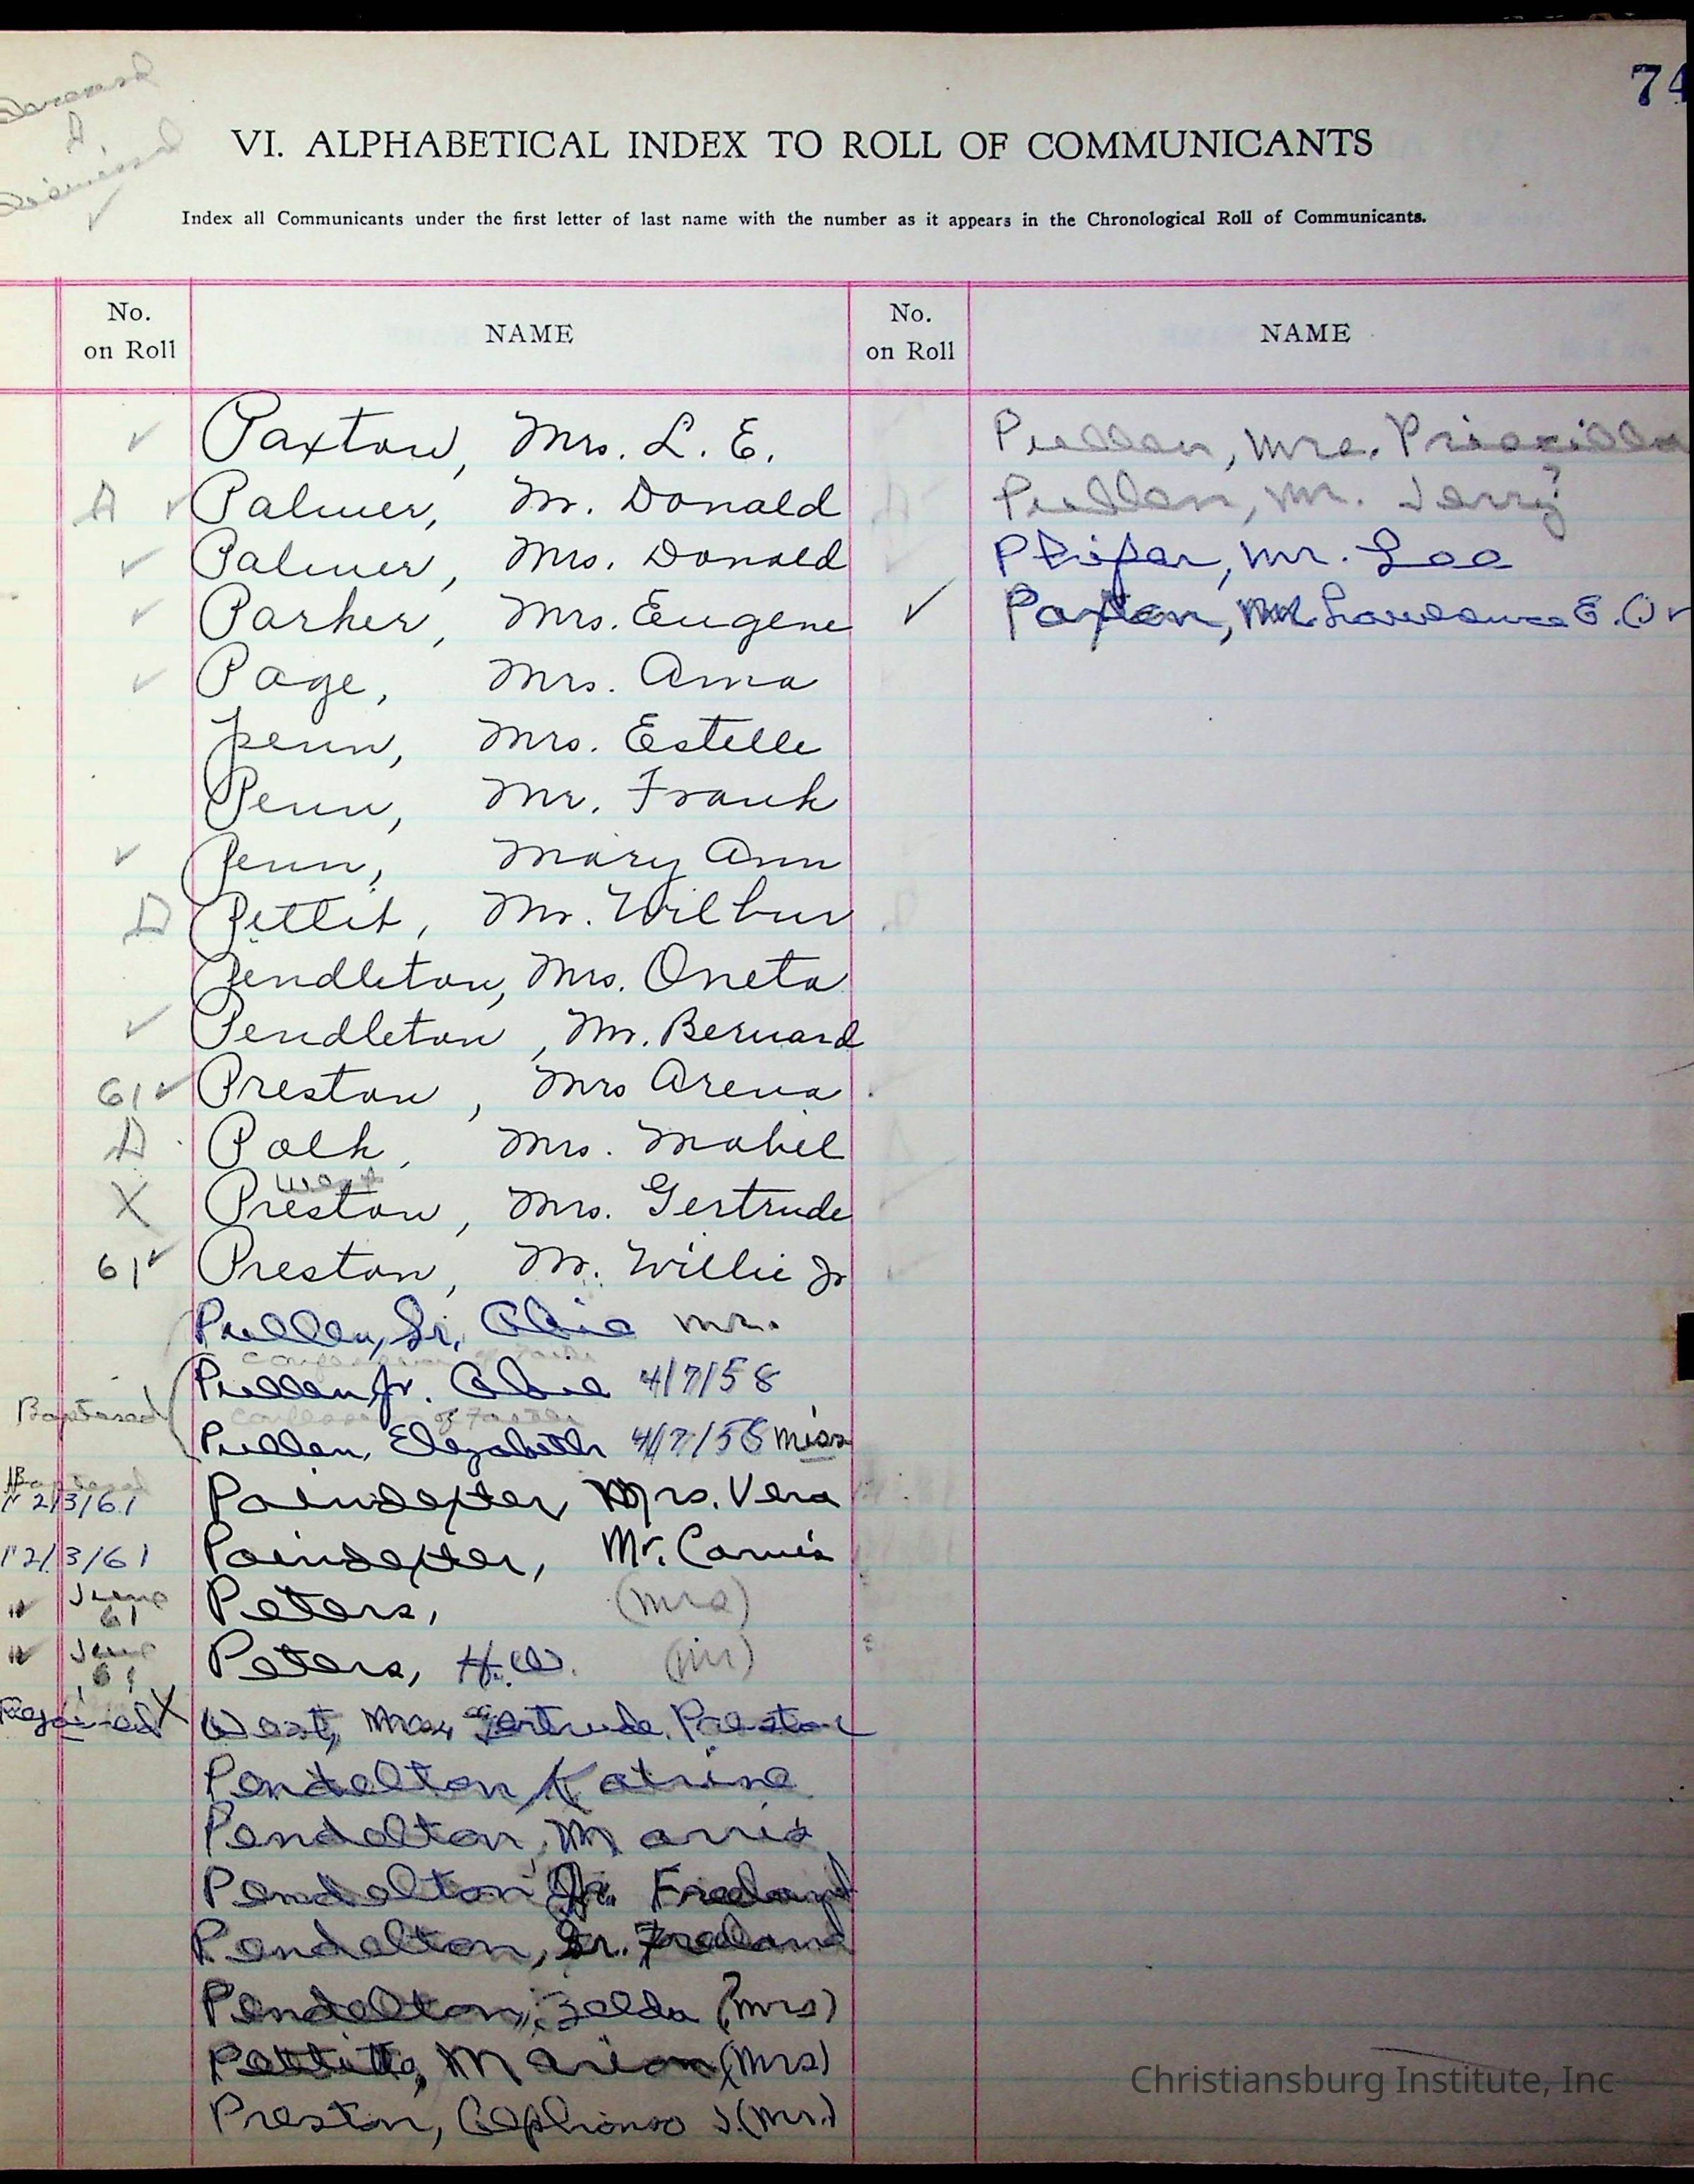 74
Deceased
D
Dismissed
✓
VI. ALPHABETICAL INDEX TO ROLL OF COMMUNICANTS
Index all Communicants under the first letter of last name with the number as it appears in the Chronological Roll of Communicants.
No. on Roll NAME No. on Roll NAME
✓ Paxton, Mrs. L. E.
D ✓ Palmer, Mr. Donald
✓ Palmer, Mrs. Donald
✓ Parker, Mrs. Eugene
✓ Page, Mrs. Anna
Penn, Mrs. Estelle
Penn, Mr. Frank
✓ Penn, Mary Ann
D Pettit, Mr. Wilbur
Pendleton, Mrs. Oneta
✓ Pendleton, Mr. Bernard
61 ✓ Preston, Mrs Arena
D Polk, Mrs. Mabel
West
X Preston, Mrs. Gertrude
61 ✓ Preston, Mr. Willie Jr
Pullen, Sr. Mr.
confession of Faith
Pullen Jr. 4/7/58
Baptised
confession of Faith
Pullen, Elizabeth 4/7/58 Miss
Baptised
2/3/61 Poindexter, Mrs. Vera
2/3/61 Poindexter, Mr.
June 61 Peters, (Mrs)
June 61 Peters, H.W. (Mr)
Rejoined X West, Mrs. Gertrude Preston
Pendelton, Katrina
Pendelton,
Pendelton Jr. Freeland
Pendelton, Sr. Freeland
Pendelton, Zelda (Mrs)
Marion (Mrs)
Preston, Alphonso J. (Mr.)
Pullen, Mrs. Priscilla
Pullen, Mr. Jerry
Mr. Lee
✓ Paxton, Mr. Lawrence E. Jr
Christiansburg Institute, Inc